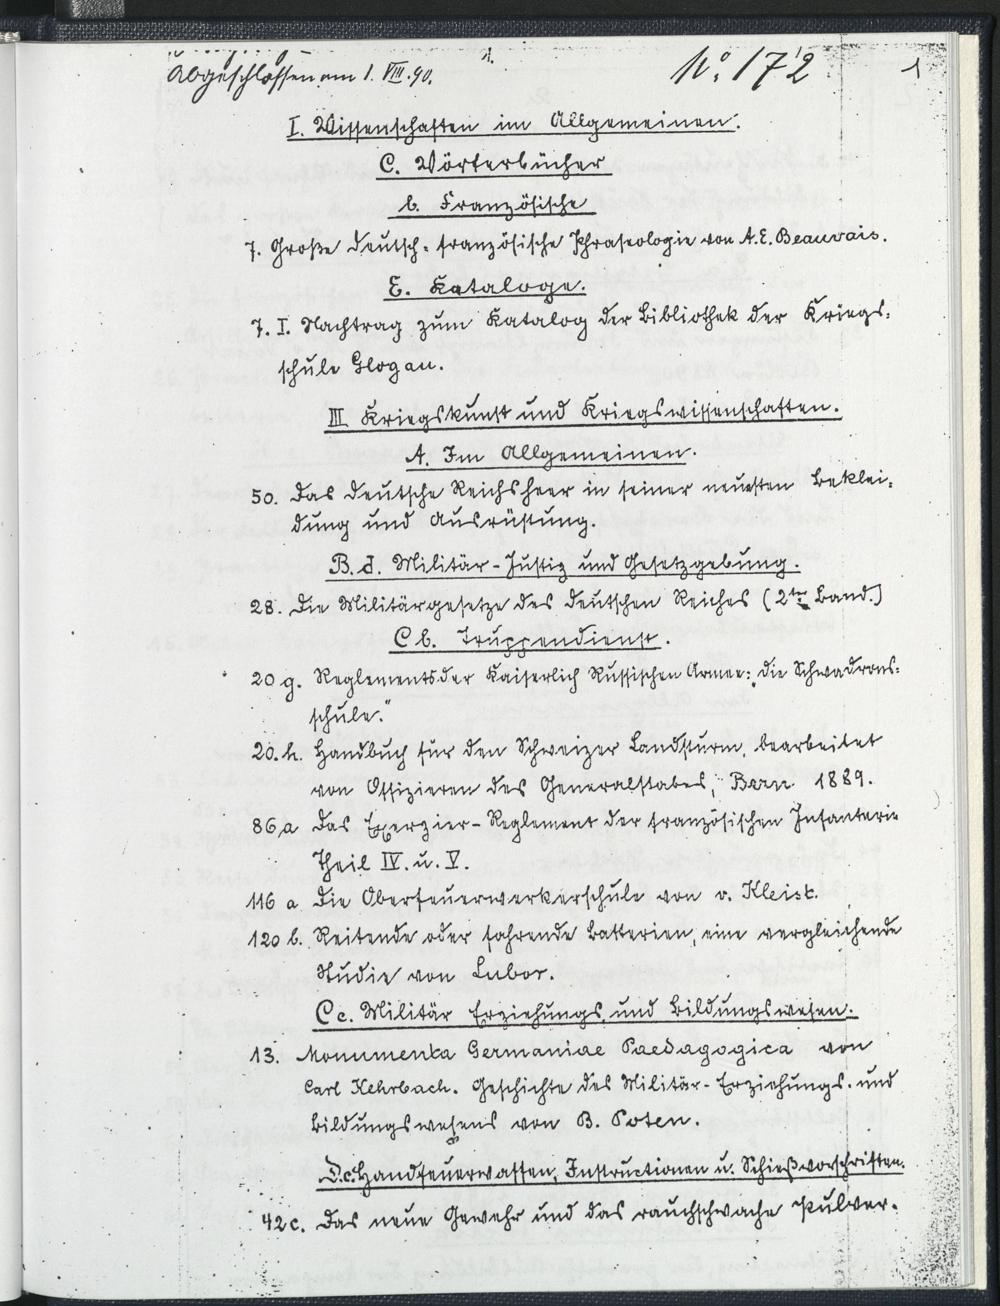 Abgeschlossen am 1. VIII. 90.
1.
No. 172
1
I. Wissenschaften im Allgemeinen.
C. Wörterbücher
b. Französische
7. Große deutsch-französische Phraseologie von A. E. Beauvais.
E. Kataloge.
7. I. Nachtrag zum Katalog der Bibliothek der Kriegs-
schule Glogau.
III Kriegskunst und Kriegswissenschaften.
A. Im Allgemeinen.
50. Das deutsche Reichsheer in seiner neuesten Beklei-
dung und Ausrüstung.
B. d. Militär-Justiz und Gesetzgebung.
28. Die Militärgesetze des deutschen Reiches (2ter Band.)
C b. Truppendienst.
20 g. Reglements der Kaiserlich Russischen Armee: „Die Schwadrons-
schule."
20. h. Handbuch für den Schweizer Landsturm, bearbeitet
von Offizieren des Generalstabes, Bern 1889.
86 a Das Exerzier-Reglement der französischen Infanterie
Theil IV. u. V.
116 a Die Oberfeuerwerkerschule von v. Kleist.
120 b. Reitende oder fahrende Batterien, eine vergleichende
Studie von Lubor.
C c. Militär Erziehungs- und Bildungswesen.
13. Monumenta Germaniae Paedagogica von
Carl Kehrbach. Geschichte des Militär-Erziehungs- und
Bildungswesens von B. Poten.
D. c. Handfeuerwaffen, Instructionen u. Schießvorschriften.
42 c. Das neue Gewehr und das rauchschwache Pulver.